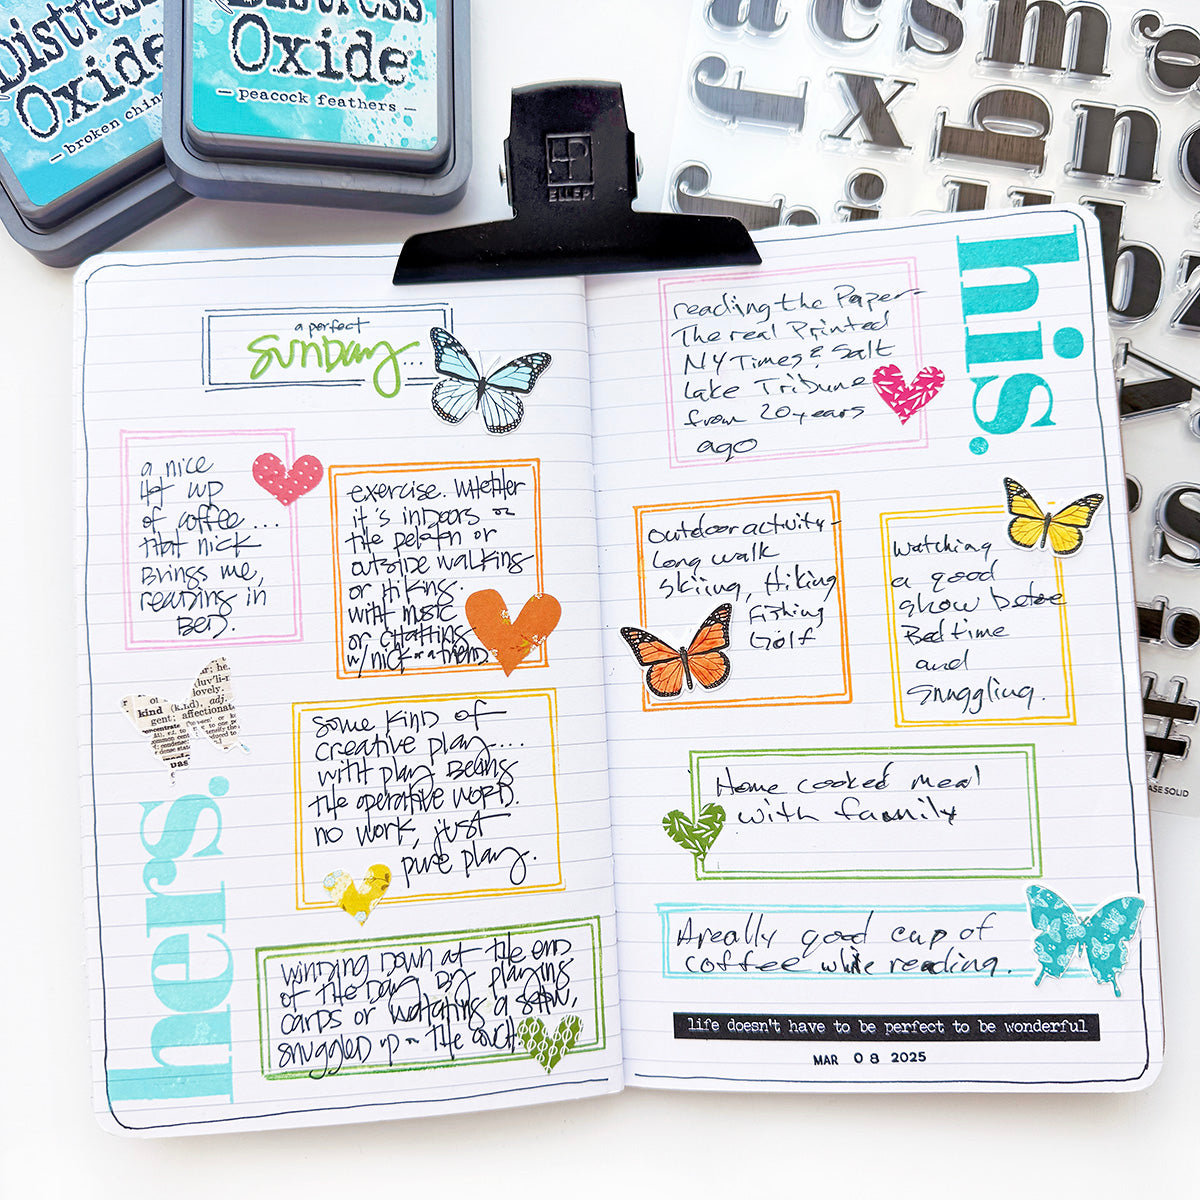 Distress
Oxide
— broken china
Distress
Oxide
— peacock feathers —
ELLEPI
a c s m e
f x g n
z
#
ASE SOLID
a perfect
Sunday...
a nice
hot cup
of coffee...
that nick
brings me,
reading in
bed.
exercise. whether
it's indoors on
the peloton or
outside walking
or hiking.
with music
or chatting
w/ nick or a friend.
kind (kīnd), adj.
gent; affectionate
some kind of
creative play...
with play being
the operative word.
no work, just
pure play.
hers.
winding down at the end
of the day by playing
cards or watching a show,
snuggled up on the couch.
his.
reading the Paper-
The real Printed
NY Times & Salt
Lake Tribune
from 20 years
ago
outdoor activity-
long walk
skiing, Hiking
Fishing
Golf
watching
a good
show before
Bedtime
and
snuggling.
Home cooked meal
with family
A really good cup of
coffee while reading.
life doesn't have to be perfect to be wonderful
MAR 08 2025